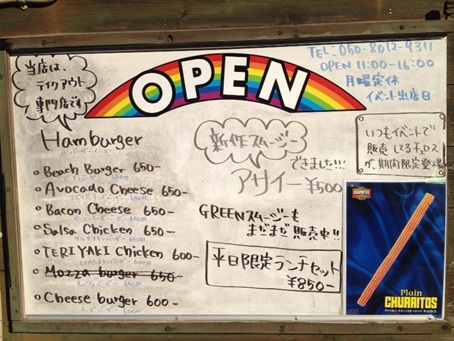 当店は、
テイクアウト
専門店です
OPEN
TEL_050-8012-9311
OPEN 11:00-16:00
月曜定休
イベント出店日
Hamburger
ハンバーガーメニュー
Beach Burger 650-
Avocado Cheese 650-
Bacon Cheese 650-
Salsa Chicken 600-
TERIYAKI Chicken 600-
Mozza burger 650
Cheese burger 600-
新作スムージー
できました!!!
アサイー ¥500
GREENスムージーも
まだまだ販売中!!
平日限定ランチセット
¥850-
いつもイベントで
販売してるチュロス
が、期間限定登場
Plain
CHURRITOS